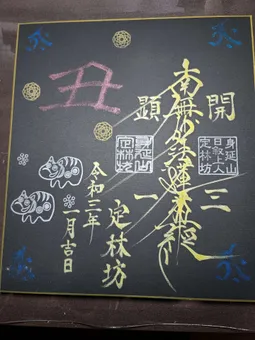 開
三
南無妙法蓮華経
顕
一
身延山
日叙上人
定林坊
身延山
定林坊
丑
定林坊
令和三年
一月吉日